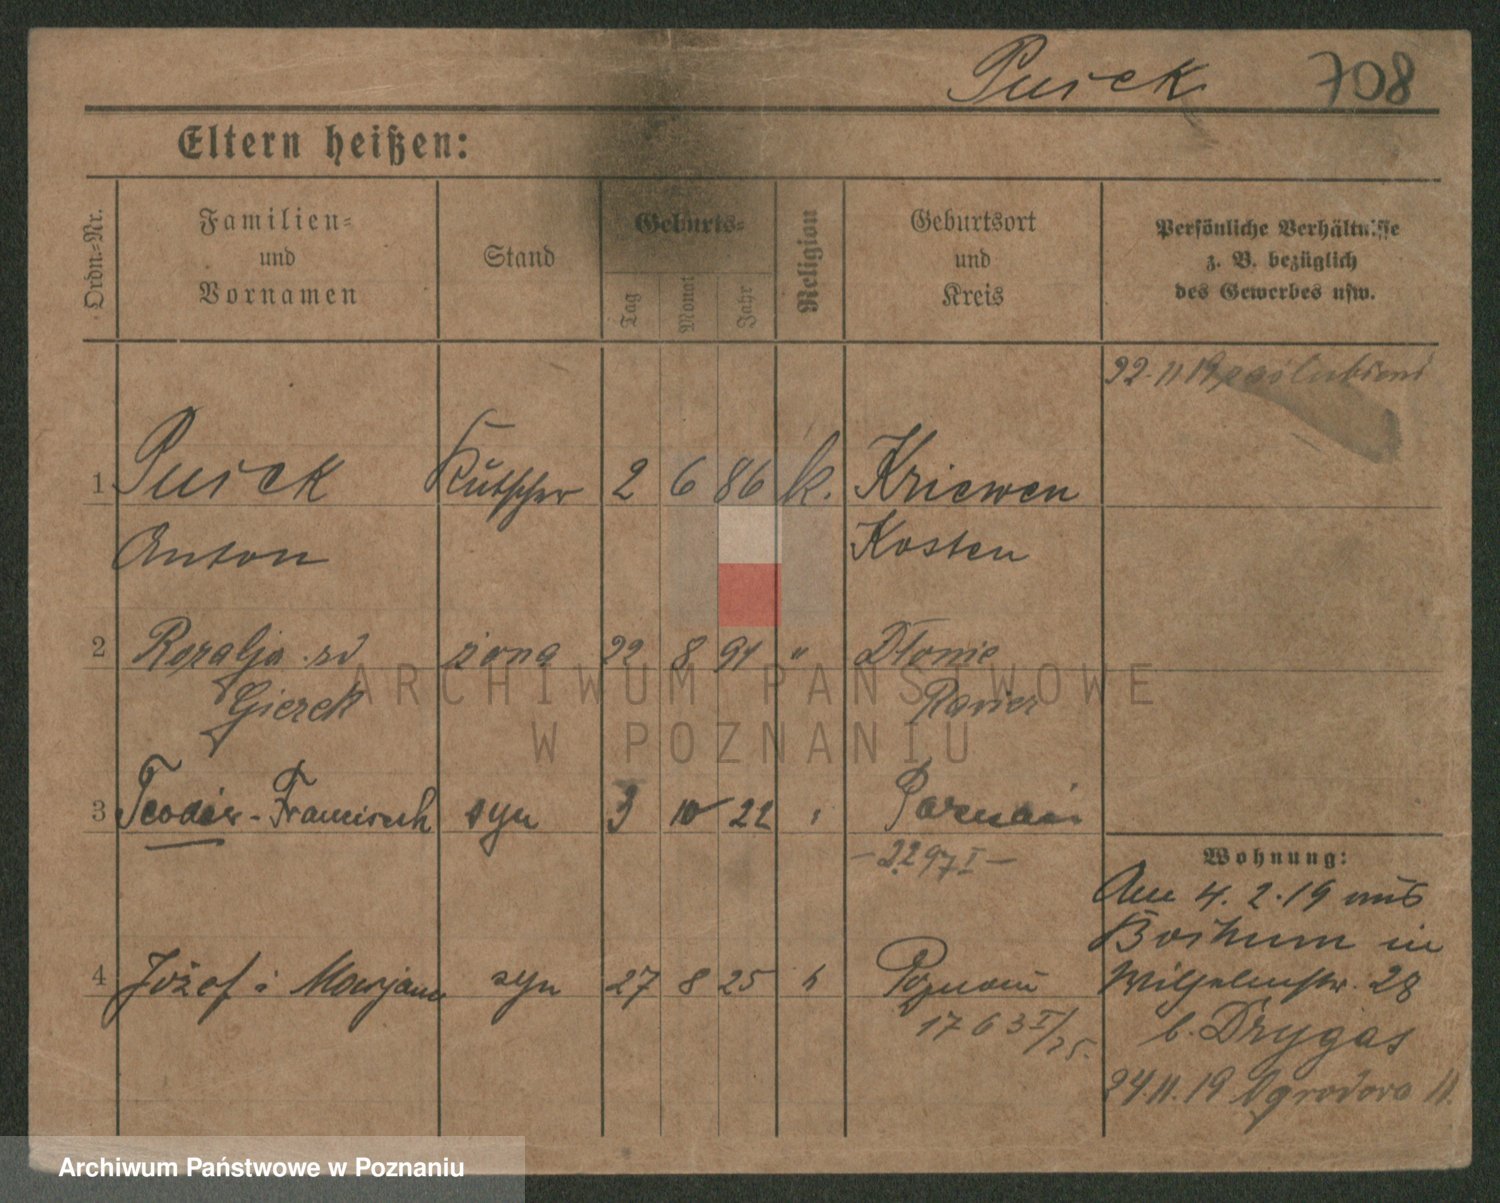 Pusček 708
Eltern heißen:
Ordn.-Nr.
Familien-
und
Vornamen
Stand
Geburts-
Tag
Monat
Jahr
Religion
Geburtsort
und
Kreis
Persönliche Verhältnisse
z. B. bezüglich
des Gewerbes usw.
22.11.19 poślubieni
1 Kutscher 2 6 86 k. Kriewen
Anton Kosten
2 Rozalja żona 22 8 91 " Dłonie
Gierek
3 syn 3 10 22
- 2297 I -
Wohnung:
Am 4.2.19 aus
Bochum in
4 Józef i Marjan syn 27 8 25 Poznań
Wilhelmstr. 28
1763 I/25.
b. Drygas
24.11.19 Ogrodova 11.
ARCHIWUM PAŃSTWOWE
W POZNANIU
Archiwum Państwowe w Poznaniu